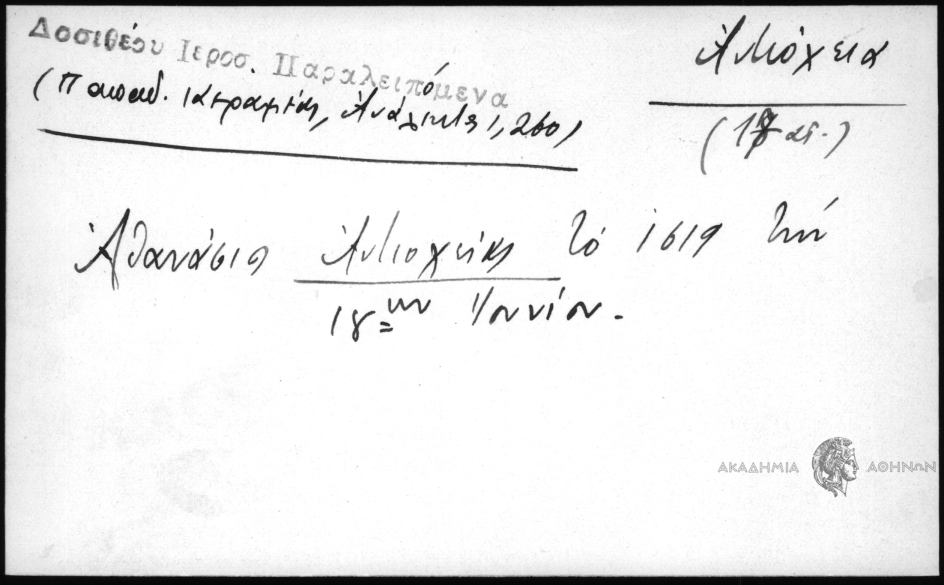 Δοσιθέου Ιεροσ. Παραλειπόμενα
(Παπαδ. Κεραμέως, Ἀνάλεκτα 1, 260)
Ἀντιόχεια
(17 αἰ.)
Ἀθανάσιος Ἀντιοχείας τὸ 1619 τὴν
18ην Ἰουνίου.
ΑΚΑΔΗΜΙΑ ΑΘΗΝΩΝ